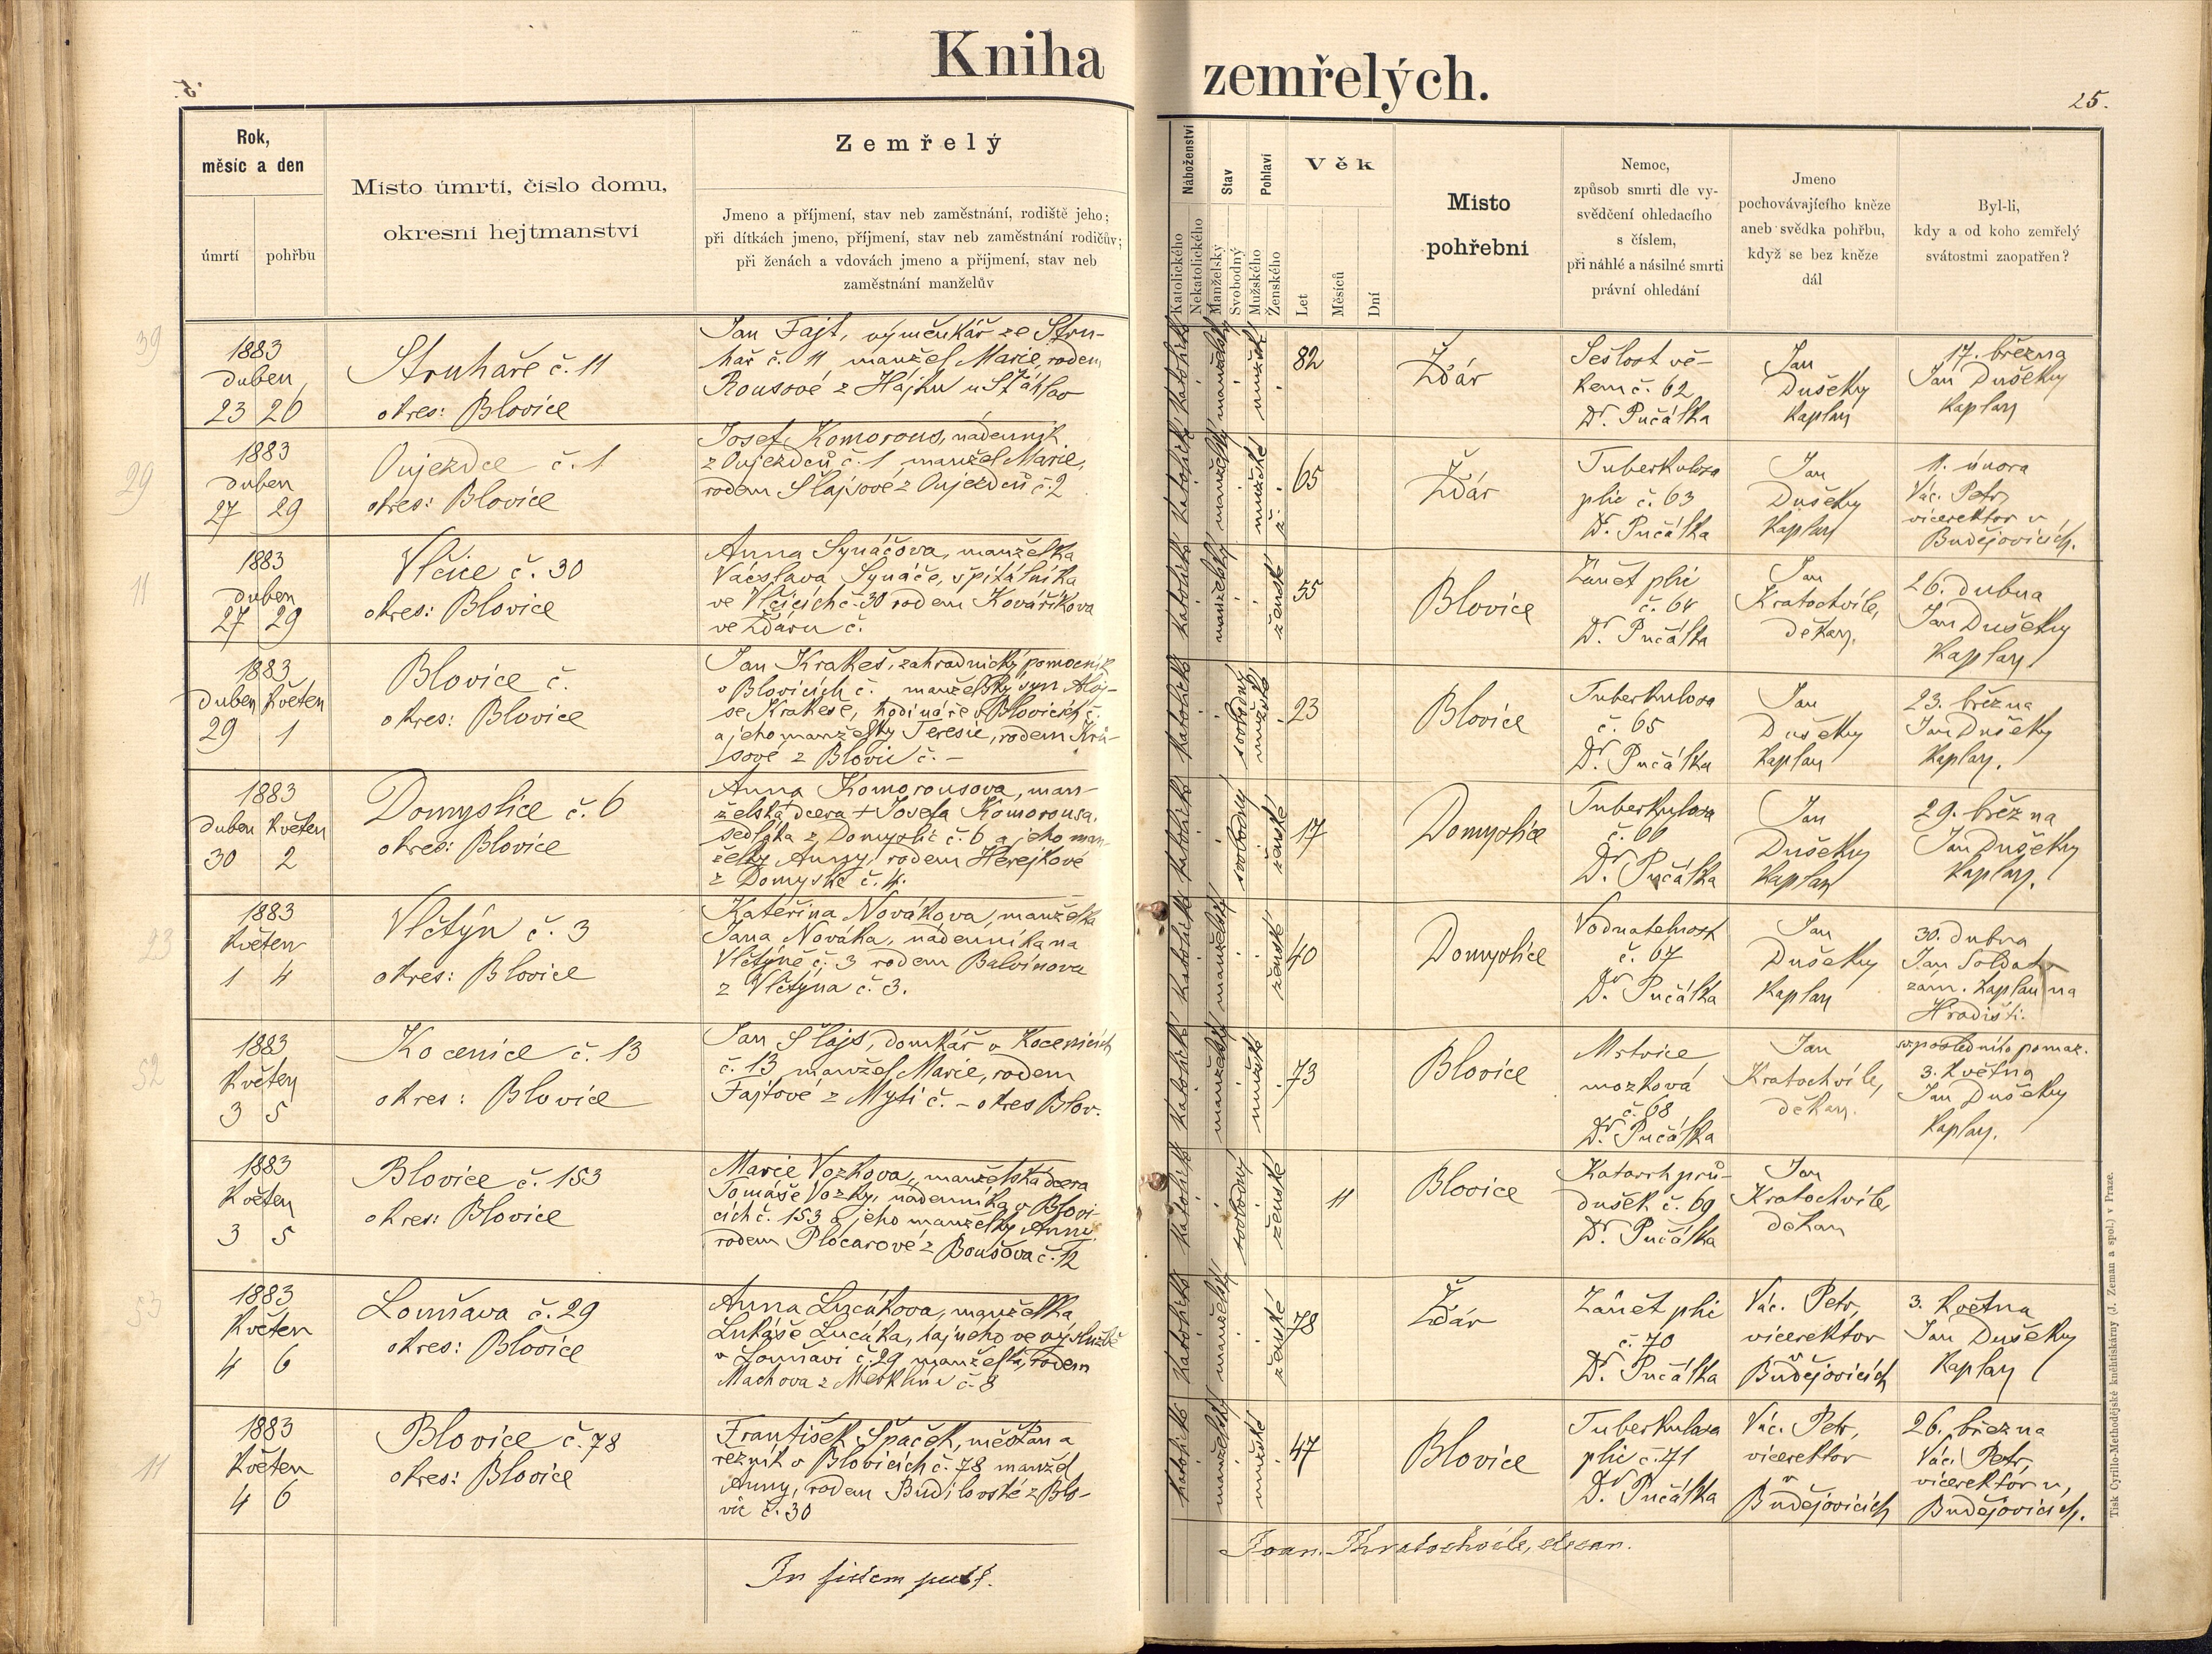 Kniha zemřelých.
25.
Rok,
měsíc a den
úmrtí
pohřbu
Místo úmrtí, číslo domu,
okresní hejtmanství
Zemřelý
Jmeno a příjmení, stav neb zaměstnání, rodiště jeho;
při dítkách jmeno, příjmení, stav neb zaměstnání rodičův;
při ženách a vdovách jmeno a příjmení, stav neb
zaměstnání manželův
Náboženství
Katolického
Nekatolického
Stav
Manželský
Svobodný
Pohlaví
Mužského
Ženského
Věk
Let
Měsíců
Dní
Místo
pohřební
Nemoc,
způsob smrti dle vy-
svědčení ohledacího
s číslem,
při náhlé a násilné smrti
právní ohledání
Jmeno
pochovávajícího kněze
aneb svědka pohřbu,
když se bez kněze
dál
Byl-li,
kdy a od koho zemřelý
svátostmi zaopatřen?
39
1883
duben
23 26
Struhaře č. 11
okres: Blovice
Jan Fajt, výměnkář ze Stru-
hař č. 11 manžel Marie, rodem
Rousové z Hájku u Šťáhlav
katolické
manželský
mužské
82
Žďár
Sešlost vě-
kem č. 62
Dr. Pučálka
Jan
Dušeky
kaplan
17. března
Jan Dušeky
kaplan
29
1883
duben
27 29
Oujezdce č. 1
okres: Blovice
Josef Komorous, nádenník
z Oujezdců č. 1, manžel Marie,
rodem Šlajsové z Oujezdců č. 2
katolické
manželský
mužské
65
Žďár
Tuberkulosa
plic č. 63
Dr. Pučálka
Jan
Dušeky
kaplan
11. února
Vác. Petr,
vicerektor v
Budějovicích.
11
1883
duben
27 29
Vlčice č. 30
okres: Blovice
Anna Synáčova, manželka
Václava Synáče, špitálníka
ve Vlčicích č. 30 rodem Kovaříkova
ve Žďáru č.
katolické
manželský
ženské
55
Blovice
Zánět plic
č. 64
Dr. Pučálka
Jan
Kratochvíle,
děkan.
26. dubna
Jan Dušeky
kaplan
1883
duben květen
29 1
Blovice č.
okres: Blovice
Jan Krakeš, zahradnický pomocník
v Blovicích č. manželský syn Aloj-
se Krakeše, hodináře v Blovicích č.
a jeho manželky Teresie, rodem Krů-
sové z Blovic č. –
katolické
svobodný
mužské
23
Blovice
Tuberkulosa
č. 65
Dr. Pučálka
Jan
Dušeky
kaplan
23. března
Jan Dušeky
kaplan.
1883
duben květen
30 2
Domyslice č. 6
okres: Blovice
Anna Komorousova, man-
želská dcera + Josefa Komorousa,
sedláka z Domyslic č. 6 a jeho man-
želky Anny, rodem Herejkové
z Domyslic č. 4.
katolické
svobodný
ženské
17
Domyslice
Tuberkulosa
č. 66
Dr. Pučálka
Jan
Dušeky
kaplan
29. března
Jan Dušeky
kaplan.
23
1883
květen
1 4
Vlčtýn č. 3
okres: Blovice
Kateřina Nováková, manželka
Jana Nováka, nádenníka na
Vlčtýně č. 3 rodem Balvínova
z Vlčtýna č. 3.
katolické
manželský
ženské
40
Domyslice
Vodnatelnost
č. 67
Dr. Pučálka
Jan
Dušeky
kaplan
30. dubna
Jan Soldat
zám. kaplan na
Hradišti.
52
1883
květen
3 5
Kocenice č. 13
okres: Blovice
Jan Šlajs, domkář v Kocenicích
č. 13 manžel Marie, rodem
Fajtové z Mytí č. – okres Blov.
katolické
manželský
mužské
73
Blovice
Mrtvice
mozková
č. 68
Dr. Pučálka
Jan
Kratochvíle,
děkan.
sv. posledního pomaz.
3. května
Jan Dušeky
kaplan.
1883
květen
3 5
Blovice č. 153
okres: Blovice
Marie Vozkova, manželská dcera
Tomáše Vozky, nádenníka v Blovi-
cích č. 153 a jeho manželky Anny
rodem Plocarové z Boušova č. 12
katolické
svobodný
ženské
11
Blovice
Katarrh prů-
dušek č. 69
Dr. Pučálka
Jan
Kratochvíle,
děkan
53
1883
květen
4 6
Louňava č. 29
okres: Blovice
Anna Lucákova, manželka
Lukáše Lucáka, hajného ve výslužbě
v Louňavi č. 29 manželka, rodem
Machova z Merklína č. 8
katolické
manželský
ženské
78
Žďár
Zánět plic
č. 70
Dr. Pučálka
Vác. Petr,
vicerektor
v Budějovicích
3. května
Jan Dušeky
kaplan
11
1883
květen
4 6
Blovice č. 78
okres: Blovice
František Špaček, měšťan a
řezník v Blovicích č. 78 manžel
Anny, rodem Budilovské z Blo-
vic č. 30
katolické
manželský
mužské
47
Blovice
Tuberkulosa
plic č. 71
Dr. Pučálka
Vác. Petr,
vicerektor
v Budějovicích
26. března
Vác. Petr,
vicerektor v
Budějovicích.
In fidem
Joan. Kratochvíle, decan.
Tisk Cyrillo-Methodějské knihtiskárny (J. Zeman a spol.) v Praze.